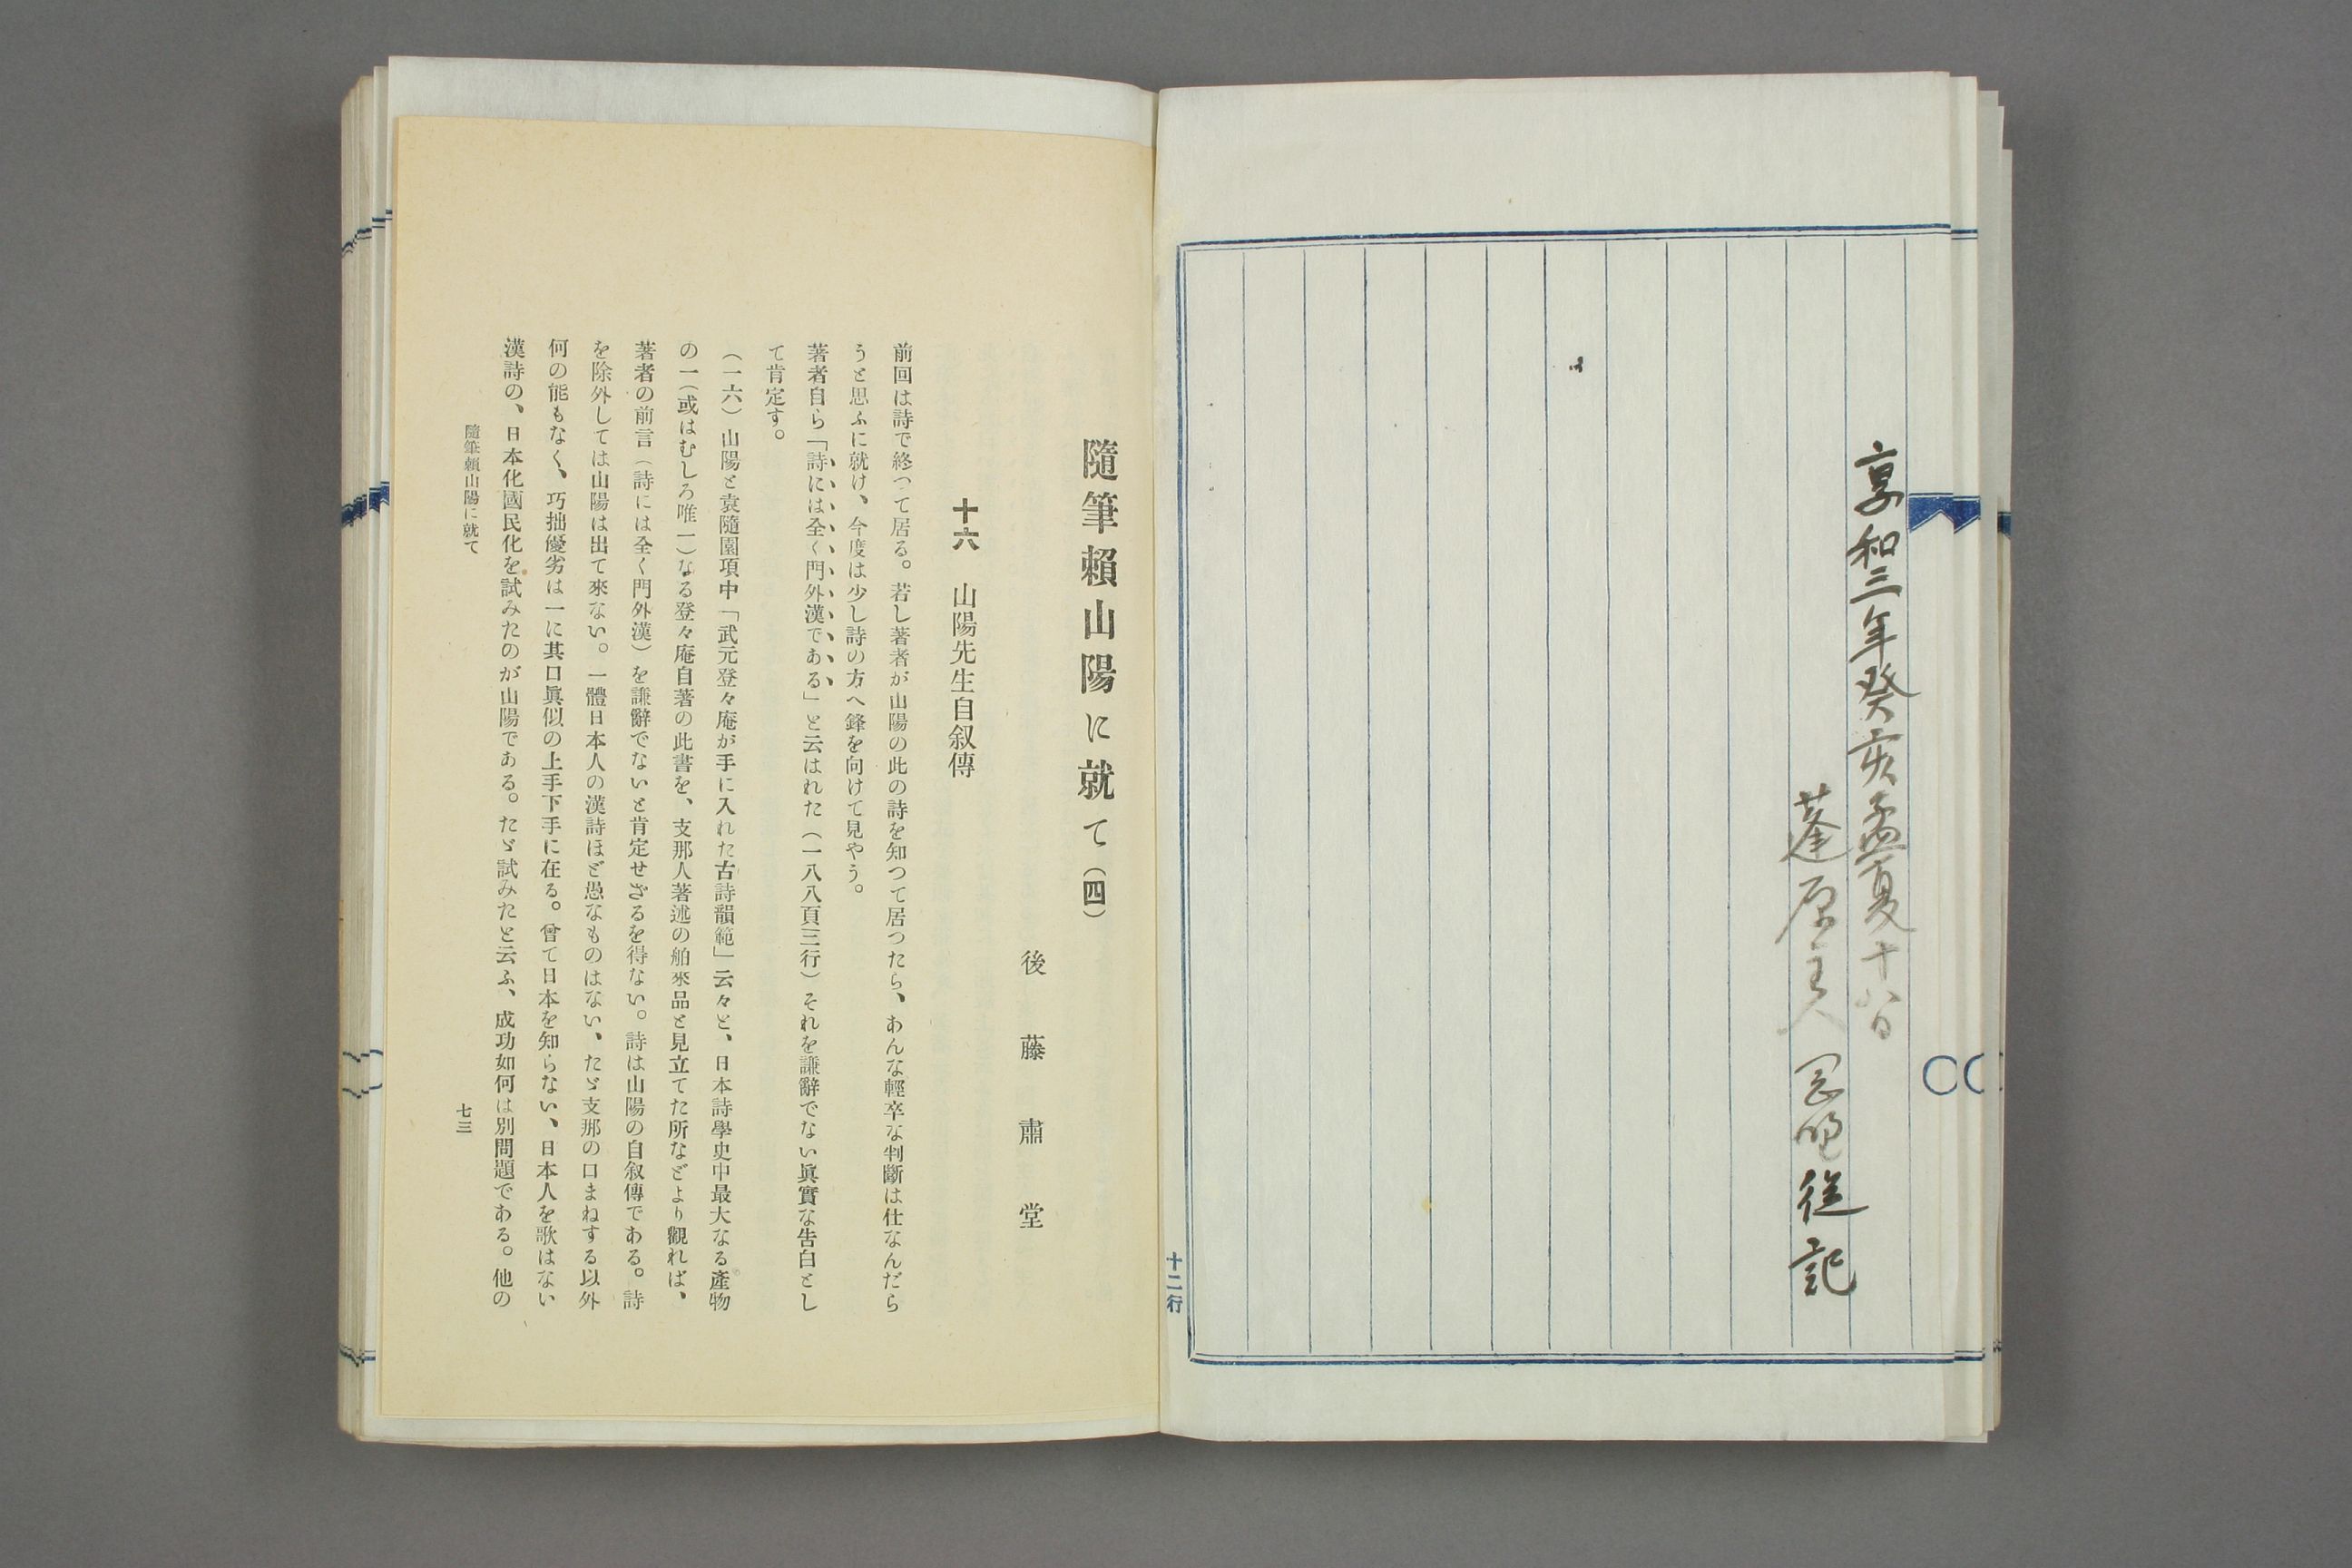 享和三年癸亥孟夏十八日
蓬原主人 従記
十二行
隨筆賴山陽に就て(四)
後藤肅堂
十六 山陽先生自叙傳
前回は詩で終つて居る。若し著者が山陽の此の詩を知つて居つたら、あんな輕卒な判斷は仕なんだら
うと思ふに就け、今度は少し詩の方へ鋒を向けて見やう。
著者自ら「詩には全く門外漢である」と云はれた(一八八頁三行)それを謙辭でない眞實な告白とし
て肯定す。
(一六)山陽と袁隨園項中「武元登々庵が手に入れた古詩韻範」云々と、日本詩學史中最大なる產物
の一(或はむしろ唯一)なる登々庵自著の此書を、支那人著述の舶來品と見立てた所などより觀れば、
著者の前言(詩には全く門外漢)を謙辭でないと肯定せざるを得ない。詩は山陽の自叙傳である。詩
を除外しては山陽は出て來ない。一體日本人の漢詩ほど愚なものはない、たゞ支那の口まねする以外
何の能もなく、巧拙優劣は一に其口眞似の上手下手に在る。曾て日本を知らない、日本人を歌はない
漢詩の、日本化國民化を試みたのが山陽である。たゞ試みたと云ふ、成功如何は別問題である。他の
隨筆賴山陽に就て
七三